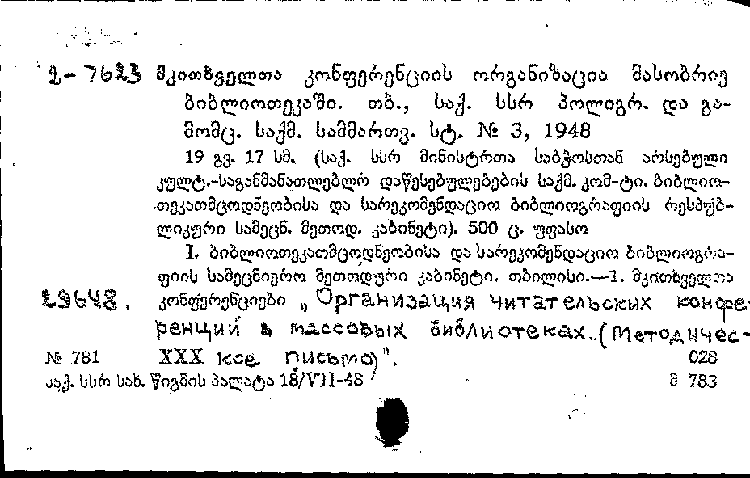 2-7623 მკითხველთა კონფერენციის ორგანიზაცია მასობრივ
ბიბლიოთეკაში. თბ., საქ. სსრ პოლიგრ. და გა-
მომც. საქმ. სამმართვ. სტ. № 3, 1948
19 გვ. 17 სმ. (საქ. სსრ მინისტრთა საბჭოსთან არსებული
კულტ.-საგანმანათლებლო დაწესებულებების საქმ. კომ-ტი. ბიბლიო-
თეკათმცოდნეობისა და სარეკომენდაციო ბიბლიოგრაფიის რესპუბ-
ლიკური სამეცნ. მეთოდ. კაბინეტი). 500 ც. უფასო
I. ბიბლიოთეკათმცოდნეობისა და სარეკომენდაციო ბიბლიოგრა-
ფიის სამეცნიერო მეთოდური კაბინეტი. თბილისი.—1. მკითხველთა
29648. კონფერენციები „Организация читательских конфе-
ренций в массовых библиотеках. (Методичес-
№ 781 XXX кое письмо)". 028
საქ. სსრ სახ. წიგნის პალატა 18/VII-48 მ 783